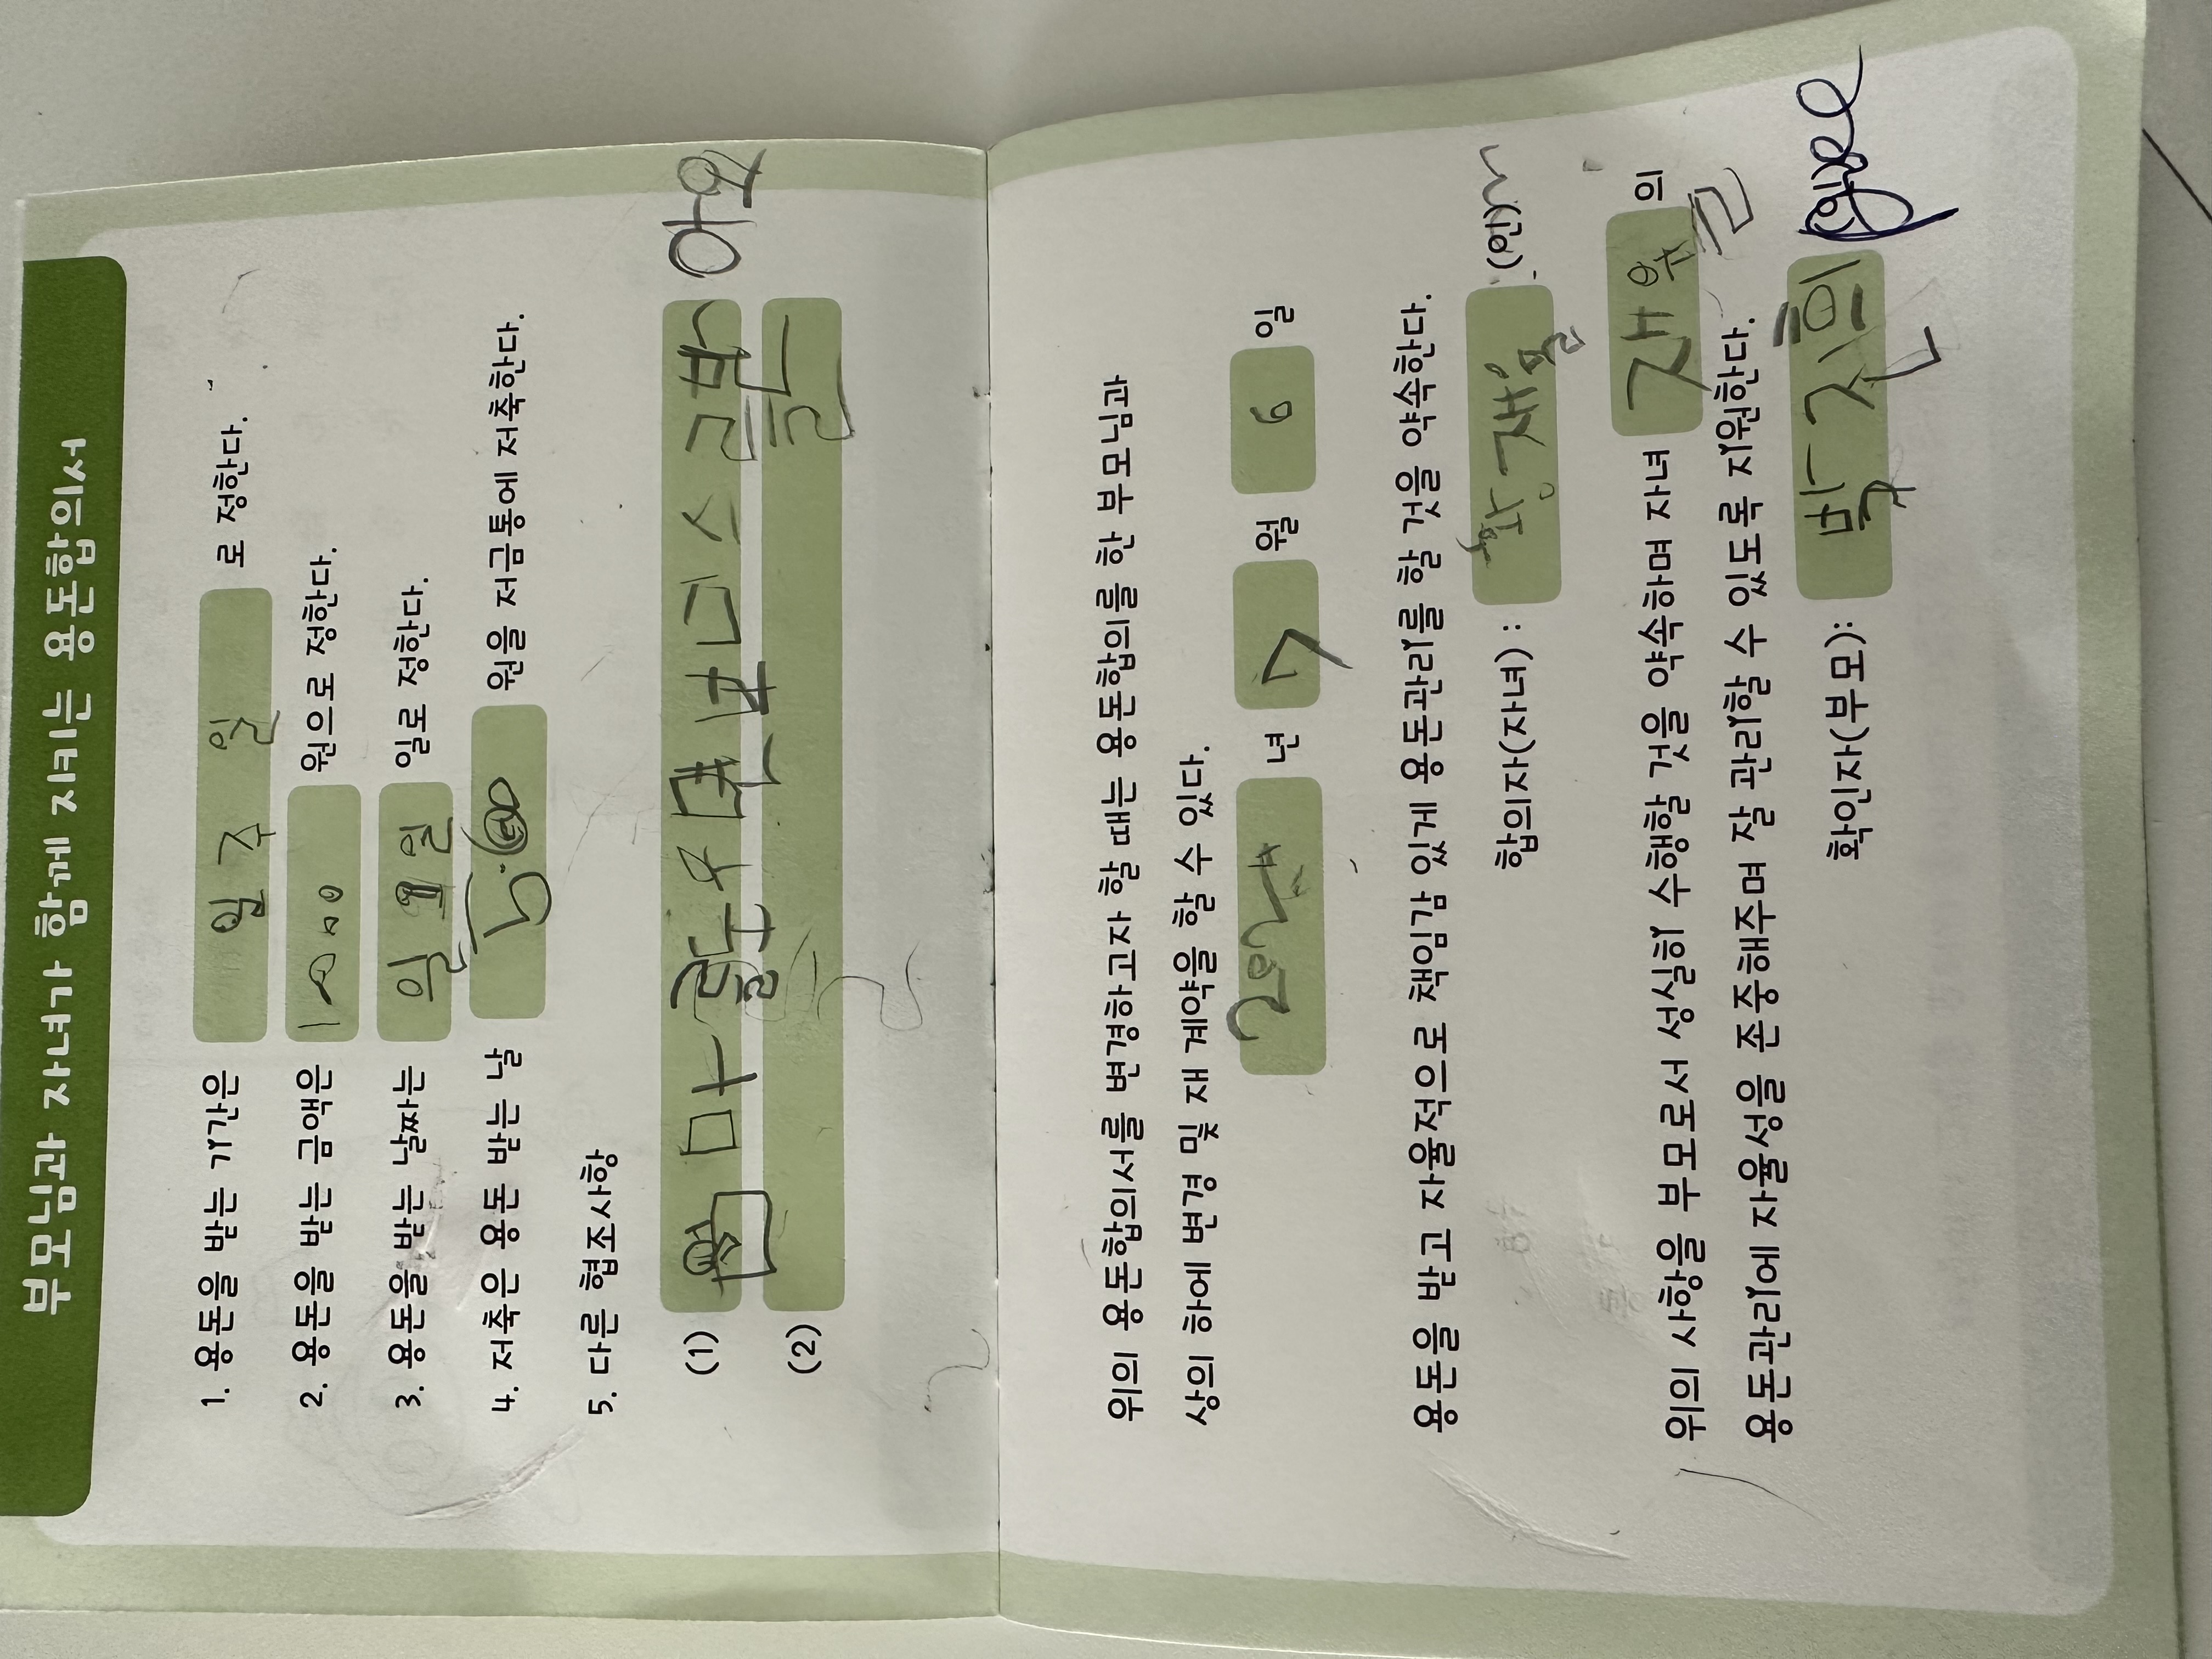 부모님과 자녀가 함께 지키는 용돈합의서
1. 용돈을 받는 기간은 일주일 로 정한다.
2. 용돈을 받는 금액은 원으로 정한다.
3. 용돈을 받는 날짜는 일요일 일로 정한다.
4. 저축은 용돈 받는 날 원을 저금통에 저축한다.
5. 다른 협조사항
(1)
(2)
위의 용돈합의서를 변경하고자 할 때는 용돈합의를 한 부모님과
상의 하에 변경 및 재 계약을 할 수 있다.
년 7 월 6 일
용돈을 받고 자율적으로 책임감 있게 용돈관리를 할 것을 약속한다.
합의자(자녀) : (인)
위의 사항을 부모로서 성실히 수행할 것을 약속하며 자녀 의
용돈관리에 자율성을 존중해주며 잘 관리할 수 있도록 지원한다.
확인자(부모): 박진희 (인)